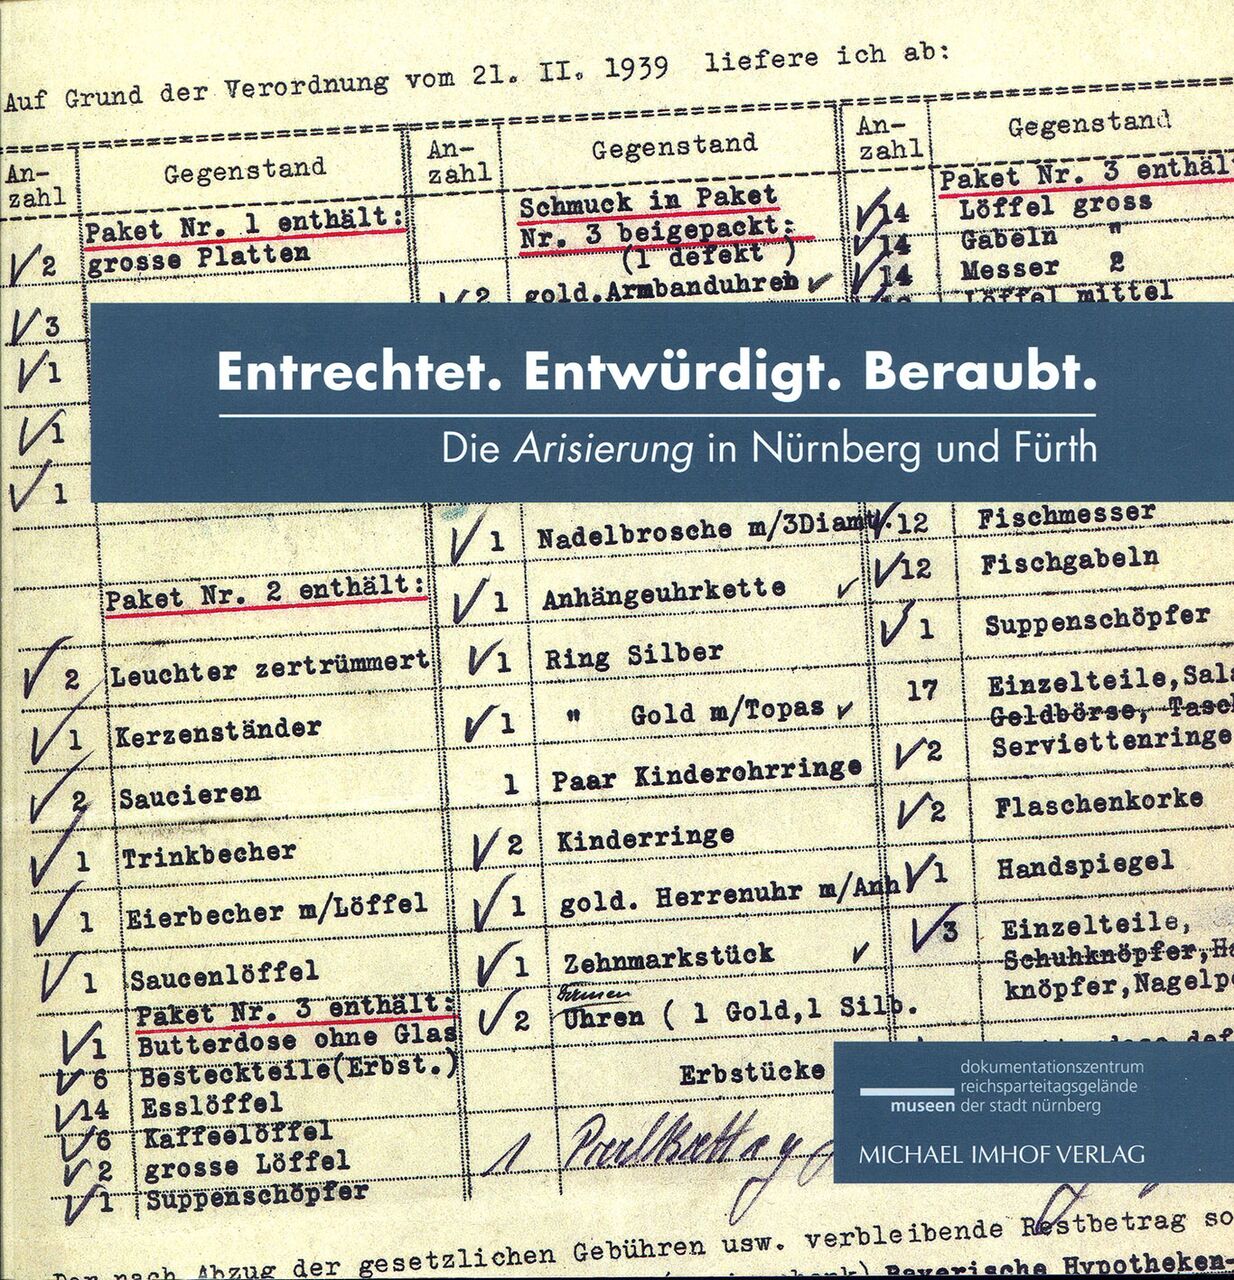 Auf Grund der Verordnung vom 21. II. 1939 liefere ich ab:
An-
zahl
Gegenstand
Paket Nr. 1 enthält:
2 grosse Platten
3
1
1
1
Paket Nr. 2 enthält:
2 Leuchter zertrümmert
1 Kerzenständer
2 Saucieren
1 Trinkbecher
1 Eierbecher m/Löffel
1 Saucenlöffel
Paket Nr. 3 enthält:
1 Butterdose ohne Glas
6 Besteckteile(Erbst.)
14 Esslöffel
6 Kaffeelöffel
2 grosse Löffel
1 Suppenschöpfer
An-
zahl
Gegenstand
Schmuck in Paket
Nr. 3 beigepackt:
(1 defekt )
2 gold.Armbanduhren
1 Nadelbrosche m/3Diamt.
1 Anhängeuhrkette
1 Ring Silber
1 " Gold m/Topas
1 Paar Kinderohrringe
2 Kinderringe
1 gold. Herrenuhr m/Anh
1 Zehnmarkstück
Damen
2 Uhren ( 1 Gold,1 Silb.
Erbstücke
1
An-
zahl
Gegenstand
Paket Nr. 3 enthäl
14 Löffel gross
14 Gabeln "
14 Messer 2
Löffel mittel
12 Fischmesser
12 Fischgabeln
1 Suppenschöpfer
17 Einzelteile,Sal
Geldbörse, Tasc
2 Serviettenringe
2 Flaschenkorke
1 Handspiegel
3 Einzelteile,
Schuhknöpfer,H
knöpfer,Nagelp
Entrechtet. Entwürdigt. Beraubt.
Die Arisierung in Nürnberg und Fürth
dokumentationszentrum
reichsparteitagsgelände
museen der stadt nürnberg
MICHAEL IMHOF VERLAG
nach Abzug der gesetzlichen Gebühren usw. verbleibende Restbetrag so
Bayerische Hypotheken-